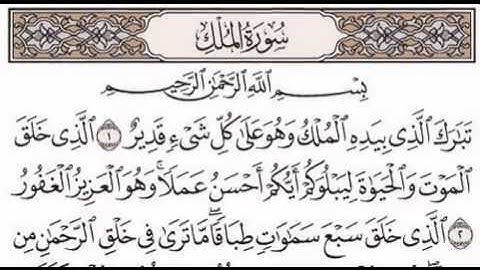 سُورَةُ الْمُلْكِ
بِسْمِ اللَّهِ الرَّحْمَٰنِ الرَّحِيمِ
تَبَارَكَ الَّذِي بِيَدِهِ الْمُلْكُ وَهُوَ عَلَىٰ كُلِّ شَيْءٍ قَدِيرٌ ١ الَّذِي خَلَقَ
الْمَوْتَ وَالْحَيَوٰةَ لِيَبْلُوَكُمْ أَيُّكُمْ أَحْسَنُ عَمَلًا ۚ وَهُوَ الْعَزِيزُ الْغَفُورُ
٢ الَّذِي خَلَقَ سَبْعَ سَمَٰوَاتٍ طِبَاقًا ۖ مَّا تَرَىٰ فِي خَلْقِ الرَّحْمَٰنِ مِن